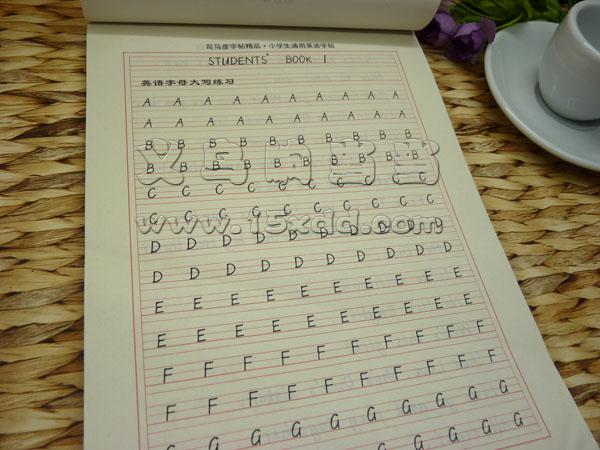 司马彦字帖精品·小学生通用英语字帖
STUDENTS' BOOK 1
英语字母大写练习
A A A A A A A A A A
A A A A A A A A A A
B B B B B B B B B B
B B B B B B B B B B
C C C C C C C C C C
C C C C C C C C C C
www.15xdd.com
D D D D D D D D D D
D D D D D D D D D D
E E E E E E E E E E
E E E E E E E E E E
F F F F F F F F F F
F F F F F F F F F F
G G G G G G G G G G
G G G G G